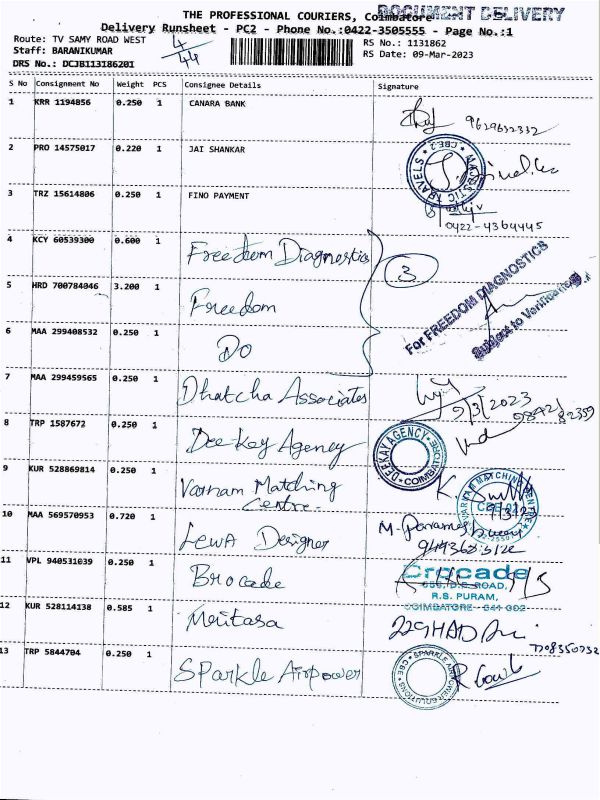 THE PROFESSIONAL COURIERS, Coimbatore
DOCUMENT DELIVERY
Delivery Runsheet - PC2 - Phone No.:0422-3505555 - Page No.:1
Route: TV SAMY ROAD WEST
4/44
RS No.: 1131862
Staff: BARANIKUMAR
RS Date: 09-Mar-2023
DRS No.: DCJB113186201
S No Consignment No Weight PCS Consignee Details Signature
1 KRR 1194856 0.250 1 CANARA BANK
9629632332
2 PRO 14575017 0.220 1 JAI SHANKAR
MAJESTIC TRAVELS CBE-2
3 TRZ 15614806 0.250 1 FINO PAYMENT
0422-4364445
4 KCY 60539300 0.600 1 Freedom Diagnostics
3
5 HRD 700784046 3.200 1 Freedom
For FREEDOM DIAGNOSTICS
Subject to Verification
6 MAA 299408532 0.250 1 Do
7 MAA 299459565 0.250 1 Dhatcha Associates
9/3/2023
98421 82359
8 TRP 1587672 0.250 1 Dee Kay Agency
DEEKAY AGENCY COIMBATORE
9 KUR 528869814 0.250 1 Varnam Matching
Centre.
VARNAM MATCHING CENTRE
10 MAA 569570953 0.720 1 Lewa Designer
11 VPL 940531039 0.250 1 Brocade
Brocade
D.B. ROAD,
R.S. PURAM,
COIMBATORE - 641 002
12 KUR 528114138 0.585 1 Meritasa
13 TRP 5844704 0.250 1 Sparkle Airpower
SPARKLE AIRPOWER SOLUTIONS CBE